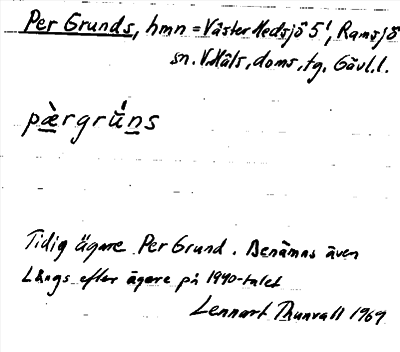 Per Grunds, hmn = Väster Hedsjö 5¹, Ramsjö
sn. V.Häls, doms, tg. Gävl.l.
pæ̀rgrú̄ns
Tidig ägare Per Grund. Benämns även
Långs efter ägare på 1990-talet
Lennart Thunvall 1969